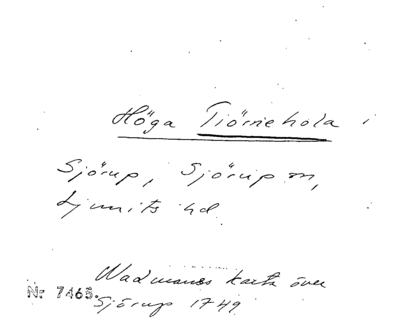 Höga Tiörnehola i
Sjörup, Sjörup sn,
Ljunits hd
Wadmans karta över
Nr 7465. Sjörup 1749